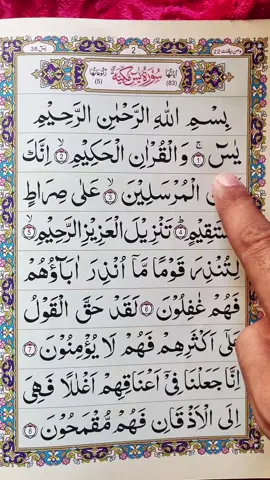 ومن يقنت 22
2
يس 36
اٰیاتُہَا (83)
سُوْرَةُ يٰسٓ مَكِّيَّةٌ
رُكُوْعَاتُهَا (5)
بِسْمِ اللّٰهِ الرَّحْمٰنِ الرَّحِيْمِ
يٰسٓ ۚ ۝1 وَالْقُرْاٰنِ الْحَكِيْمِ ۙ ۝2 اِنَّكَ
الْمُرْسَلِيْنَ ۙ ۝3 عَلٰى صِرَاطٍ
مُّسْتَقِيْمٍ ؕ ۝4 تَنْزِيْلَ الْعَزِيْزِ الرَّحِيْمِ ۙ ۝5
لِتُنْذِرَ قَوْمًا مَّاۤ اُنْذِرَ اٰبَآؤُهُمْ
فَهُمْ غٰفِلُوْنَ ۝6 لَقَدْ حَقَّ الْقَوْلُ
عَلٰۤى اَكْثَرِهِمْ فَهُمْ لَا يُؤْمِنُوْنَ ۝7
اِنَّا جَعَلْنَا فِيْۤ اَعْنَاقِهِمْ اَغْلٰلًا فَهِيَ
اِلَى الْاَذْقَانِ فَهُمْ مُّقْمَحُوْنَ ۝8